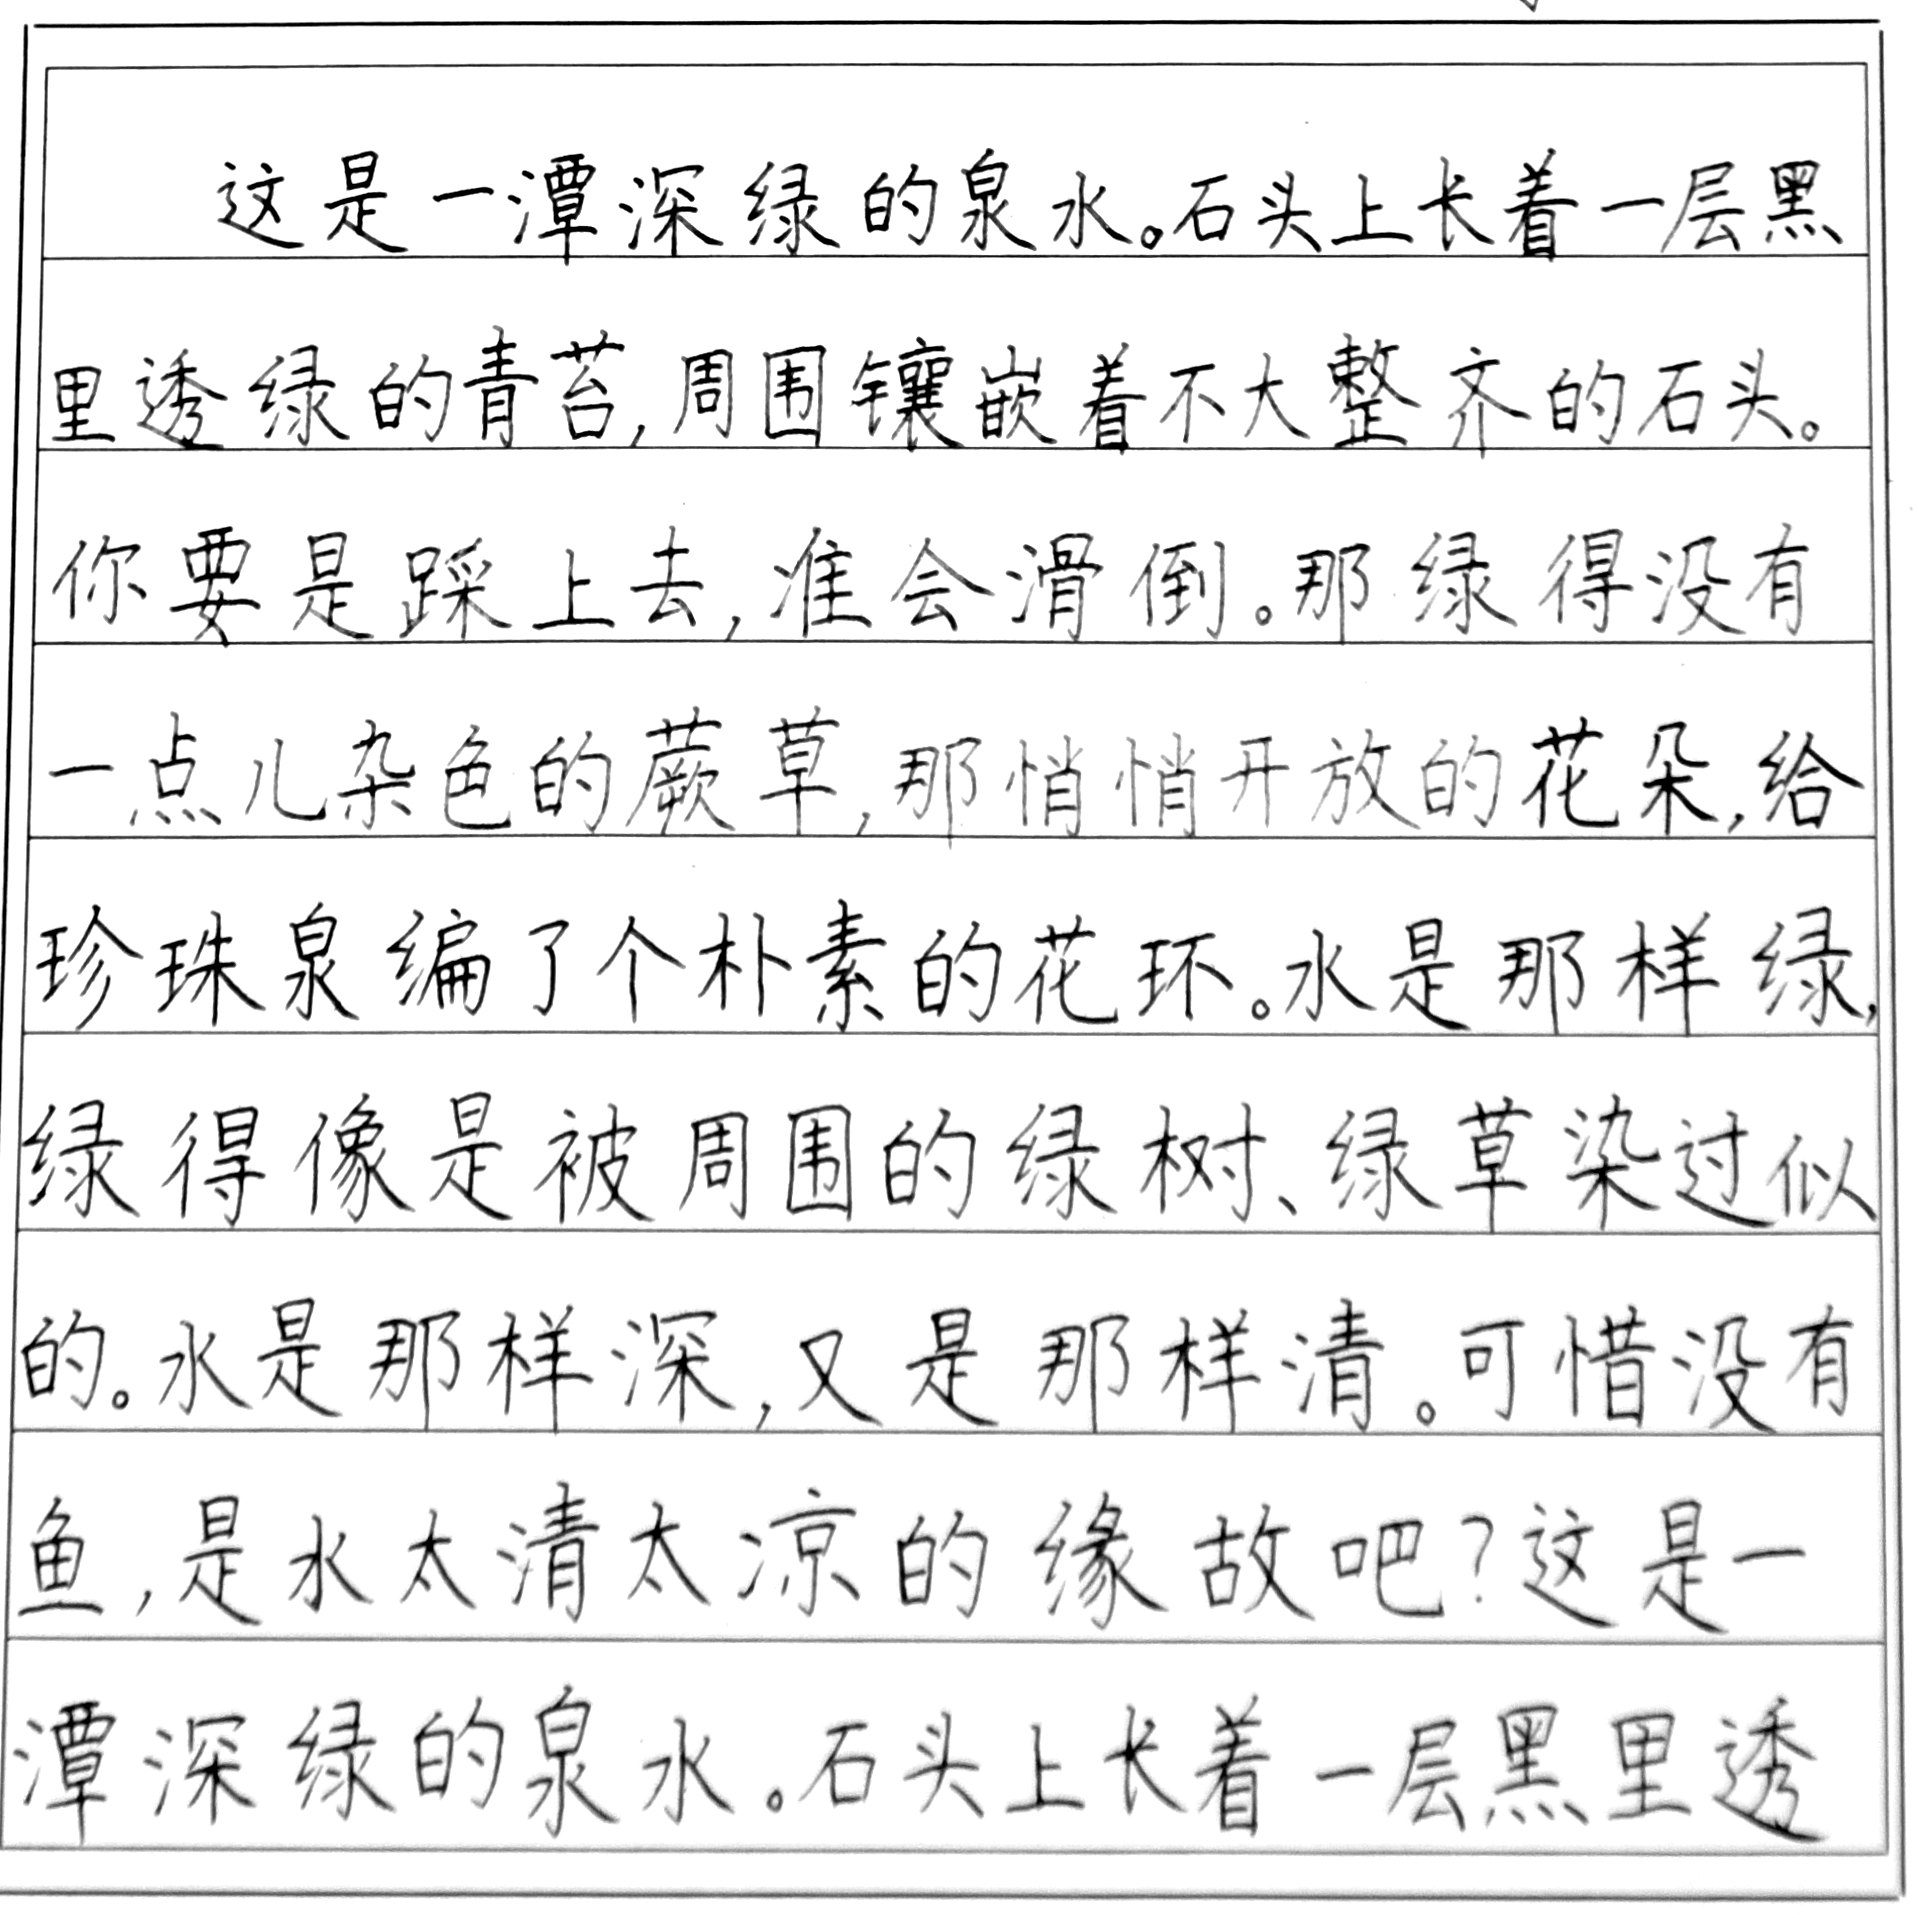 这是一潭深绿的泉水。石头上长着一层黑
里透绿的青苔,周围镶嵌着不大整齐的石头。
你要是踩上去,准会滑倒。那绿得没有
一点儿杂色的蕨草,那悄悄开放的花朵,给
珍珠泉编了个朴素的花环。水是那样绿,
绿得像是被周围的绿树、绿草染过似
的。水是那样深,又是那样清。可惜没有
鱼,是水太清太凉的缘故吧?这是一
潭深绿的泉水。石头上长着一层黑里透